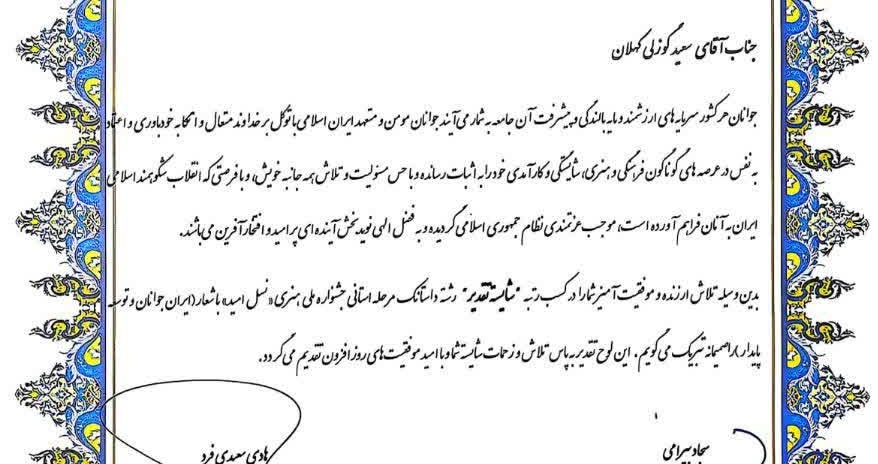 جناب آقای سعید گوزلی کهلان
جوانان هر کشور سرمایه های ارزشمند و مایه بالندگی و پیشرفت آن جامعه به شمار می آیند جوانان مومن و متعهد ایران اسلامی با توکل بر خداوند متعال و اتکا به خودباوری و اعتماد
به نفس در عرصه های گوناگون فرهنگی و هنری، شایستگی و کارآمدی خود را به اثبات رسانده و با حس مسئولیت و تلاش همه جانبه خویش، و با فرصتی که انقلاب شکوهمند اسلامی
ایران به آنان فراهم آورده است، موجب عزتمندی نظام جمهوری اسلامی گردیده و به فضل الهی نوید بخش آینده ای پر امید و افتخار آفرین می باشند.
بدین وسیله تلاش ارزنده و موفقیت آمیز شما را در کسب رتبه "شایسته تقدیر" رشته داستانک مرحله استانی جشنواره ملی هنری «نسل امید» با شعار (ایران جوانان و توسعه
پایدار) را صمیمانه تبریک می گویم. این لوح تقدیر به پاس تلاش و زحمات شایسته شما و با امید موفقیت های روز افزون تقدیم می گردد.
سجاد بیرامی
هادی سعیدی فرد